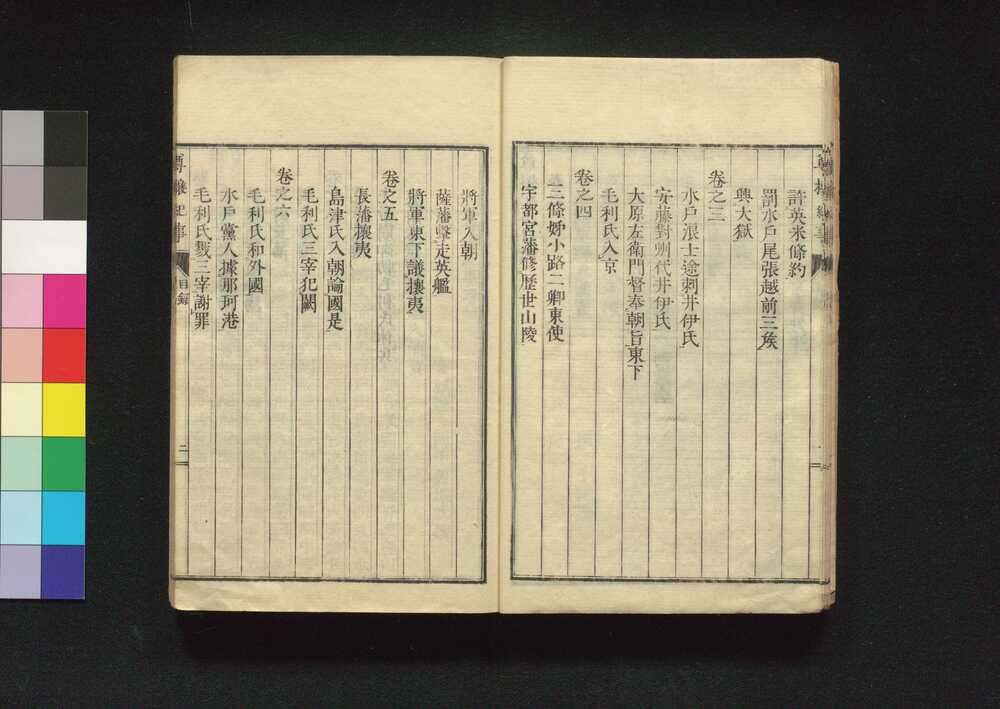 許英米條約
罰水戶尾張越前三矦
興大獄
卷之三
水戶浪士途刺井伊氏
安藤對州代井伊氏
大原左衛門督奉朝旨東下
毛利氏入京
卷之四
三條姊小路二卿東使
宇都宮藩修歷世山陵
將軍入朝
薩藩擊走英艦
將軍東下議攘夷
卷之五
長藩攘夷
島津氏入朝論國是
毛利氏三宰犯闕
卷之六
毛利氏和外國
水戶黨人據那珂港
毛利氏戮三宰謝罪
尊攘紀事
目錄
二